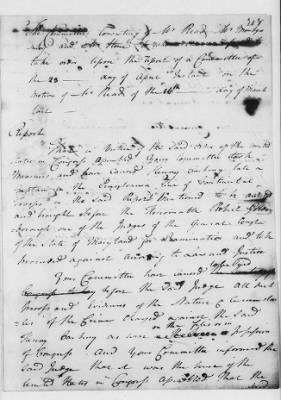 The Committee Consisting of Mr Read, Mr Montgo
mery and Mr Stone
to take order upon the report of a Committee of
the 23 day of April Instant on the
motion of Mr Read of the day of March
last
Report
That in Virtue of the Said order of the united
States in Congress Assembled Your Committee took
Measures, and have caused Henry Carbery late a
Captain in the Pensylvania line of Continental
Troops in the Said Report Mentioned to be
and brought before the Honorable Robert
borough one of the Judges of the General Court
of the State of Maryland for Examination and to be
proceeded against According to Law and Justice
Your Committee have caused
before the Said Judge all such
Proofs and evidence of the Nature & Circumstan
ces of the Crime Charged against the Said
Henry Carbery as were in the
of Congress And Your Committee informed the
Said Judge that it was the sense of the
United States in Congress Assembled that the
Said